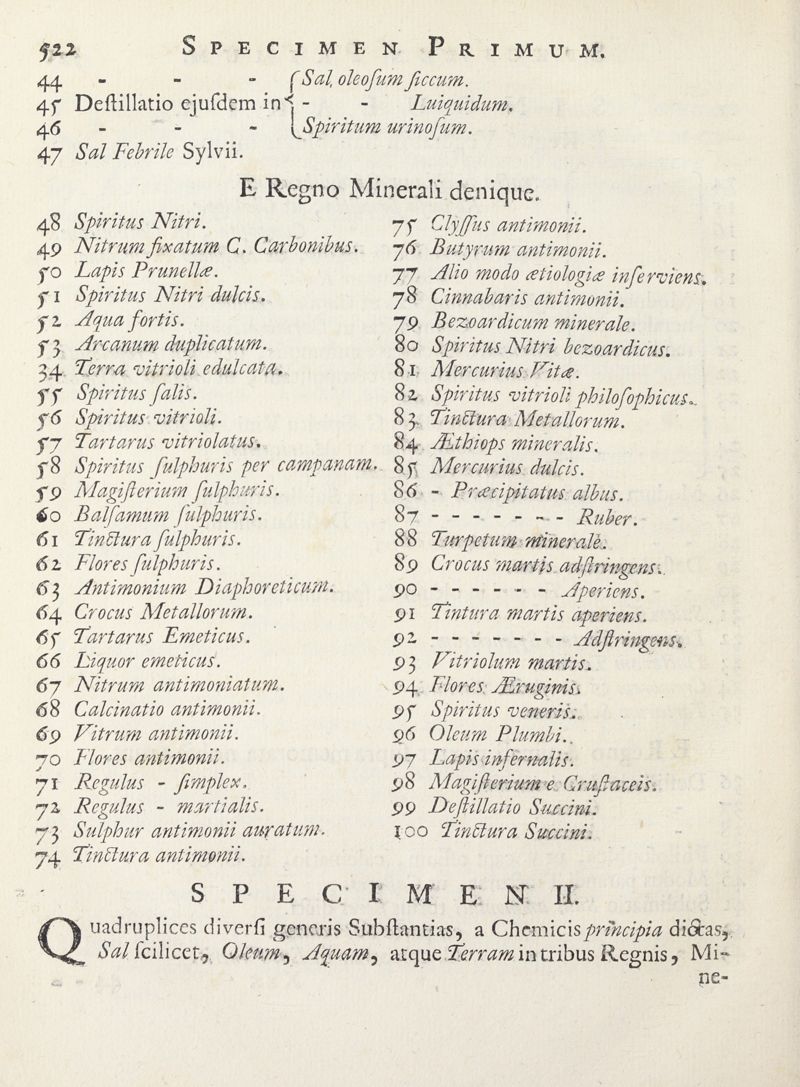 522 SPECIMEN PRIMUM.
44 - - - { Sal, oleoſum ſiccum.
45 Deſtillatio ejuſdem in { - - Luiquidum.
46 - - - { Spiritum urinoſum.
47 Sal Febrile Sylvii.
E Regno Minerali denique.
48 Spiritus Nitri.
49 Nitrum fixatum C. Carbonibus.
50 Lapis Prunellæ.
51 Spiritus Nitri dulcis.
52 Aqua fortis.
53 Arcanum duplicatum.
34 Terra vitrioli edulcata.
55 Spiritus ſalis.
56 Spiritus vitrioli.
57 Tartarus vitriolatus.
58 Spiritus ſulphuris per campanam.
59 Magiſterium ſulphuris.
60 Balſamum ſulphuris.
61 Tinctura ſulphuris.
62 Flores ſulphuris.
63 Antimonium Diaphoreticum.
64 Crocus Metallorum.
65 Tartarus Emeticus.
66 Liquor emeticus.
67 Nitrum antimoniatum.
68 Calcinatio antimonii.
69 Vitrum antimonii.
70 Flores antimonii.
71 Regulus - ſimplex.
72 Regulus - martialis.
73 Sulphur antimonii auratum.
74 Tinctura antimonii.
75 Clyſſus antimonii.
76 Butyrum antimonii.
77 Alio modo ætiologiæ inſerviens.
78 Cinnabaris antimonii.
79 Bezoardicum minerale.
80 Spiritus Nitri bezoardicus.
81 Mercurius Vitæ.
82 Spiritus vitrioli philoſophicus.
83 Tinctura Metallorum.
84 Æthiops mineralis.
85 Mercurius dulcis.
86 - Præcipitatus albus.
87 - - - - - - - Ruber.
88 Turpetum minerale.
89 Crocus martis adſtringens.
90 - - - - - - Aperiens.
91 Tintura martis aperiens.
92 - - - - - - - Adſtringens.
93 Vitriolum martis.
94 Flores Æruginis.
95 Spiritus veneris.
96 Oleum Plumbi.
97 Lapis infernalis.
98 Magiſterium e Cruſtaceis.
99 Deſtillatio Succini.
100 Tinctura Succini.
SPECIMEN II.
Quadruplices diverſi generis Subſtantias, a Chemicis principia dictas,
Sal ſcilicet, Oleum, Aquam, atque Terram in tribus Regnis, Mi-
ne-